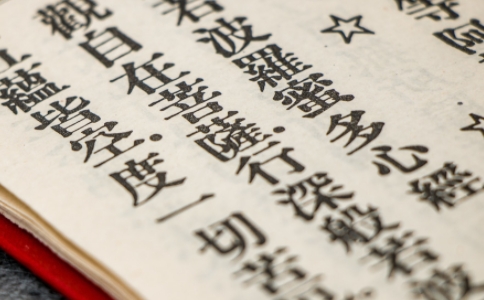 等阿
☆ ☆
若波羅蜜多心經
觀自在菩薩.行深般若波
五蘊皆空.度一切苦